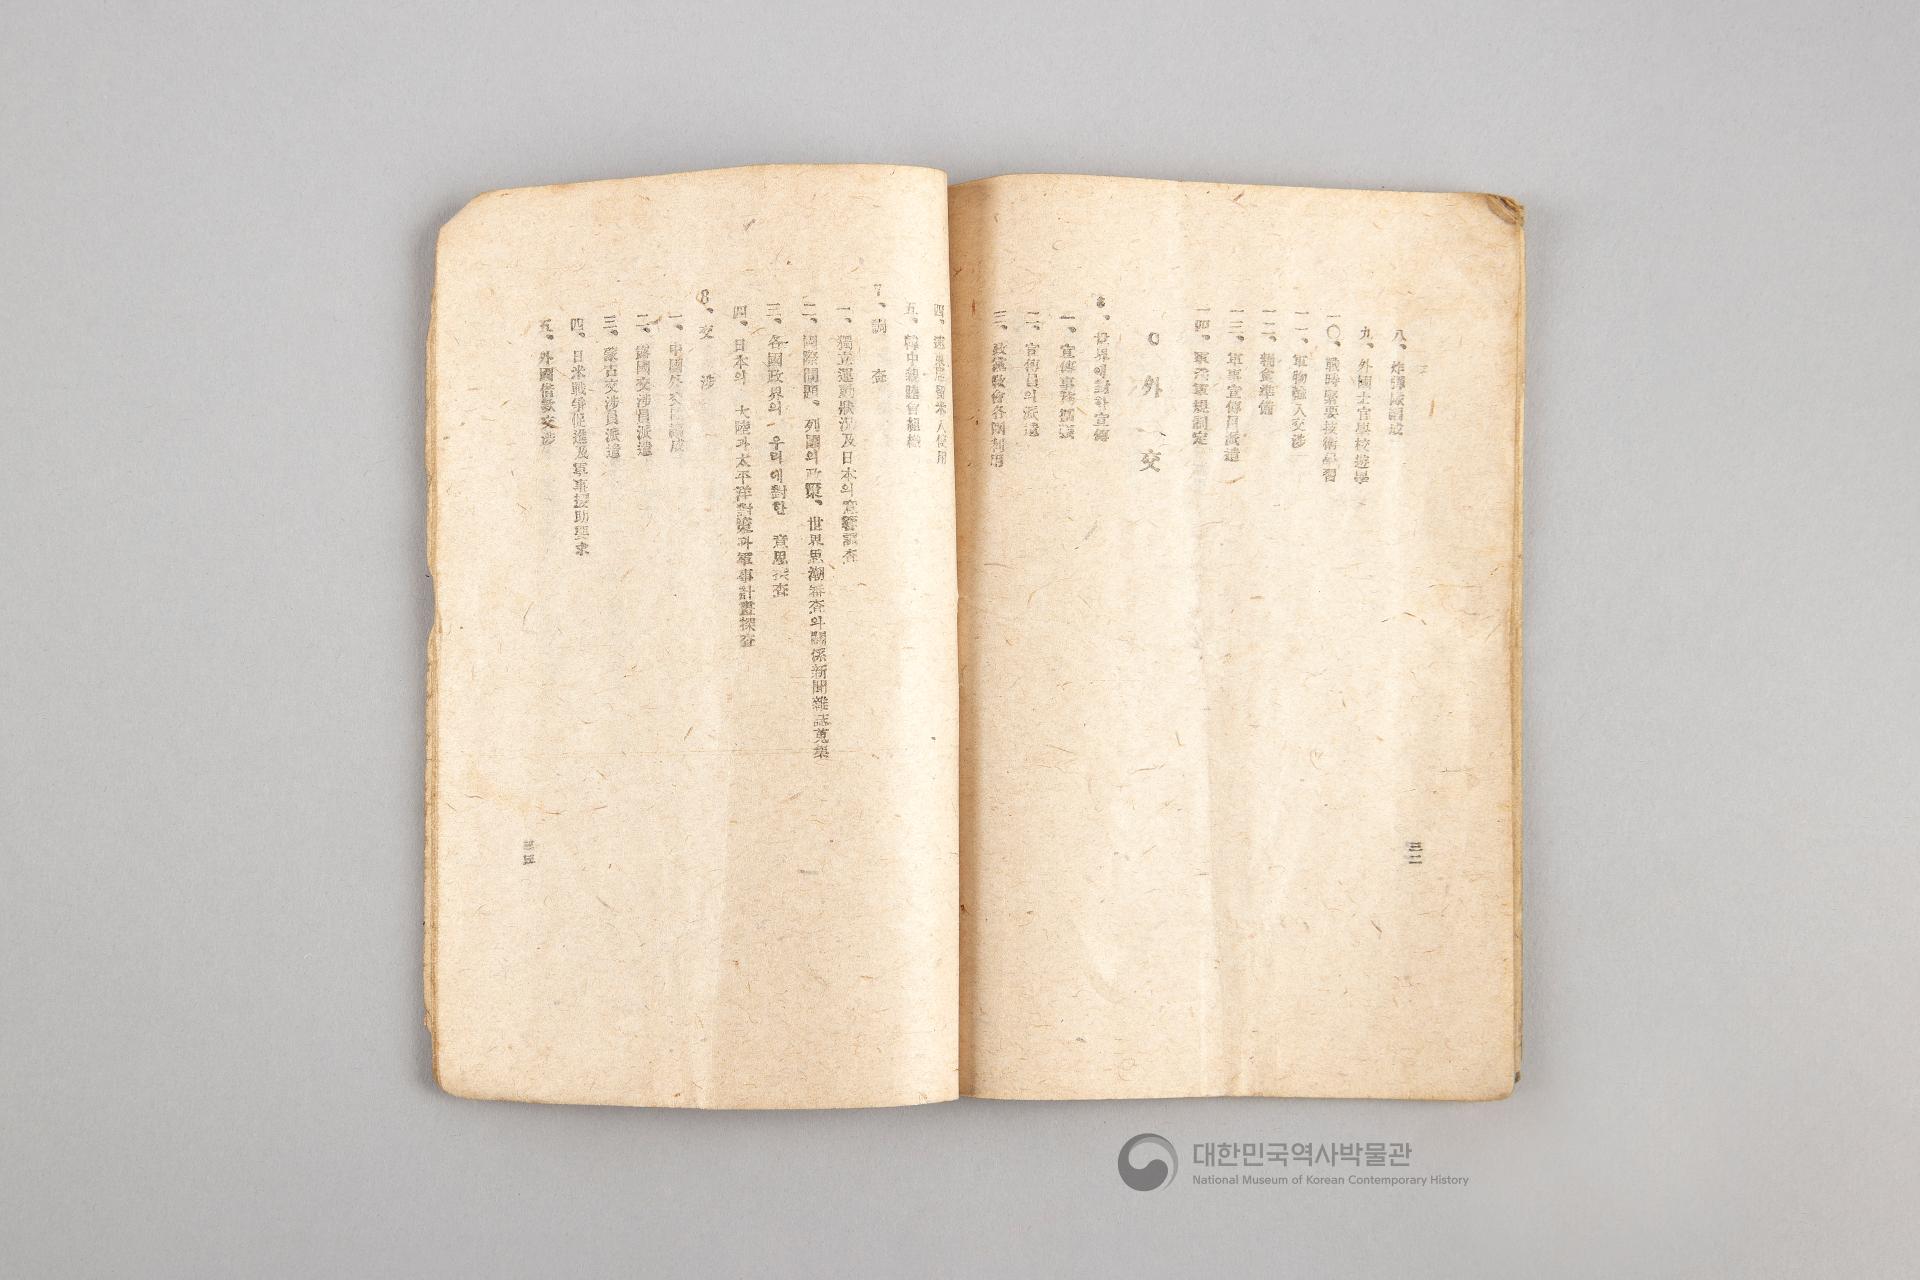 八、炸彈隊編成
九、外國士官學校遊學
一〇、戰時緊要技術學習
一一、軍物輸入交涉
一二、糧食準備
一三、軍事宣傳員派遣
一四、軍
規制定
〇 外 交
世界에對한宣傳
一、宣傳事務擴張
二、宣傳員의派遣
三、政黨敎會各團利用
三二
四、
五、韓中親睦會組織
7、調 查
一、獨立運動狀況及日本의
調查
二、國際問題、列國의政策、世界思潮審査와關係新聞雜誌蒐集
三、各國政界의 우리에對한 意思
查
四、日本의 大陸과太平洋對策과軍事計畫探查
8、交 涉
一、中國外交
成
二、露國交涉員派遣
三、蒙古交涉員派遣
四、日米戰爭促進及軍事援助要求
五、外國借款交涉
대한민국역사박물관
National Museum of Korean Contemporary History